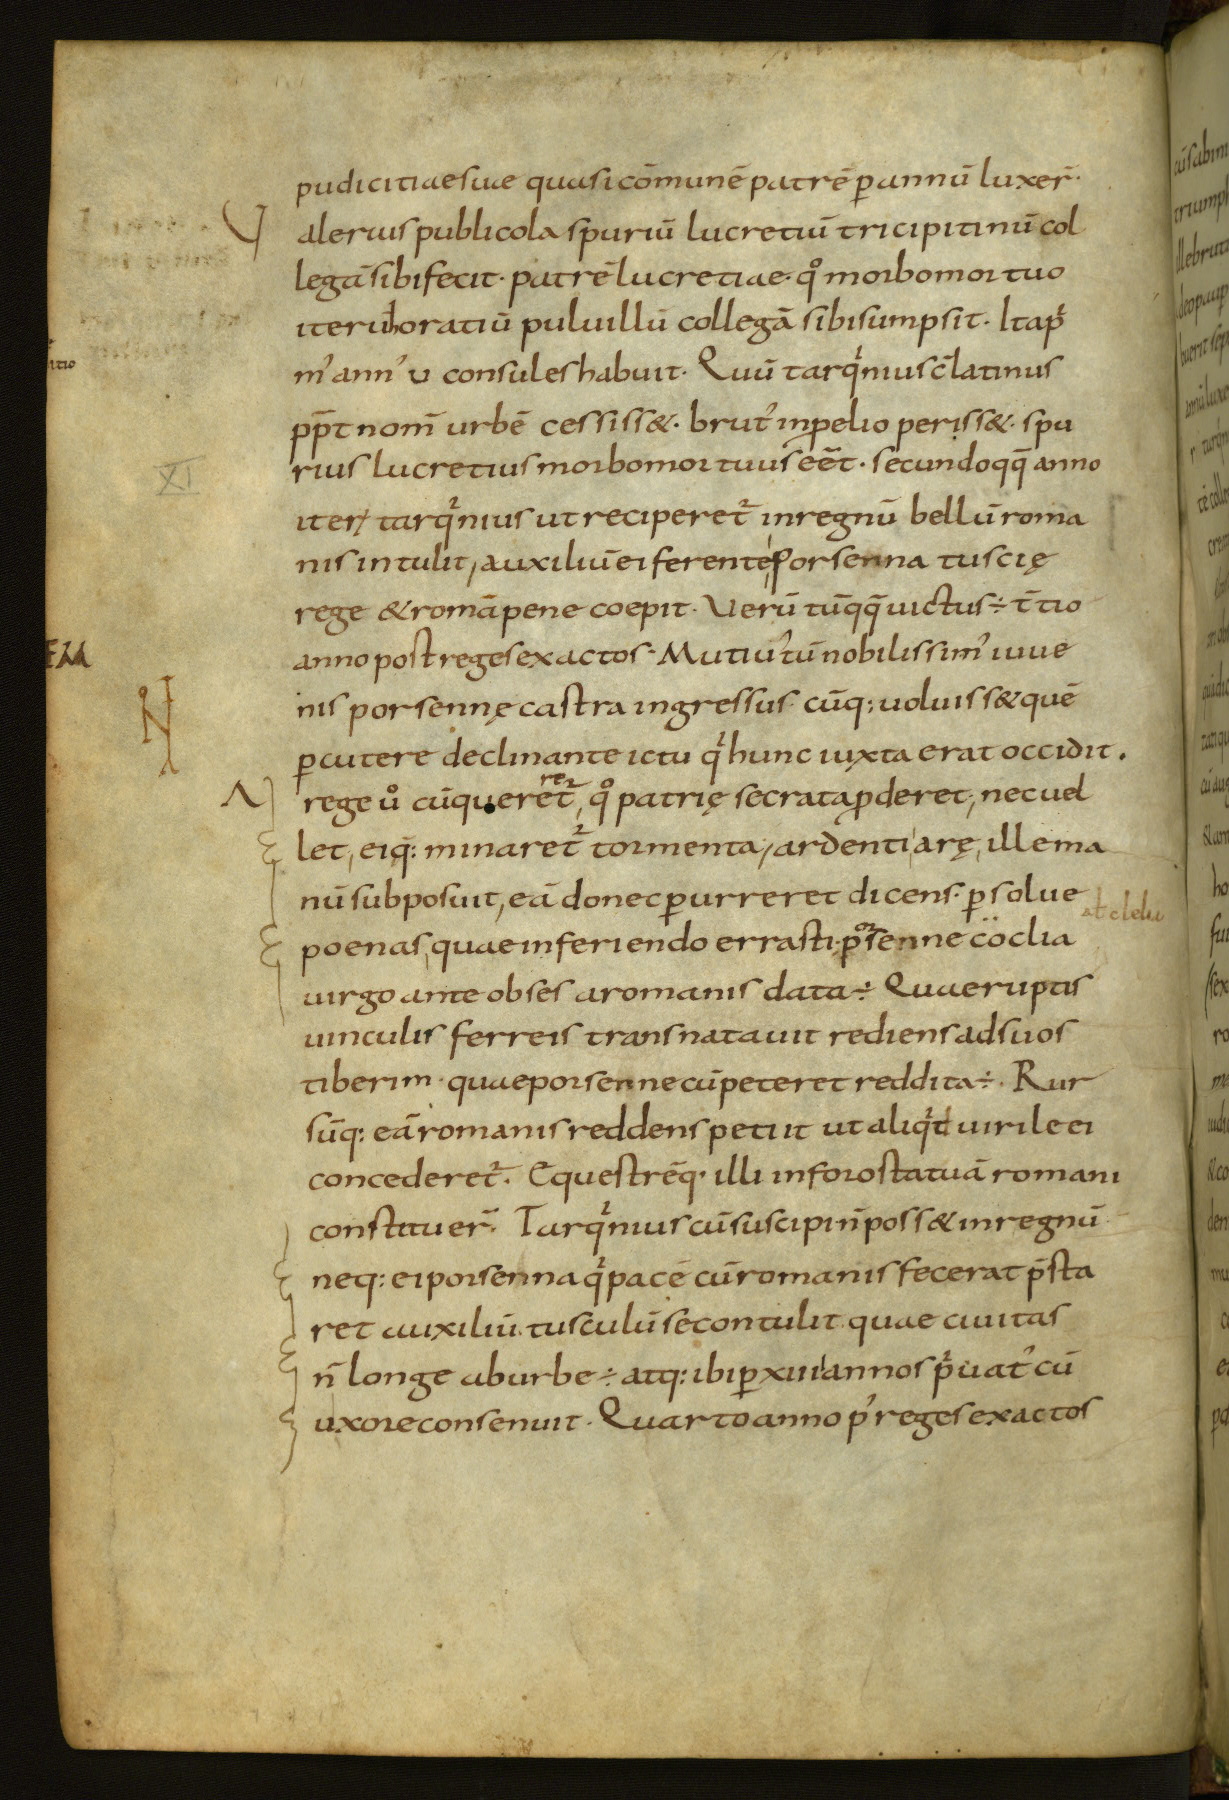 pudicitiae suae quasi cōmunē patrē ꝑ annū luxer̄·
Valerius publicola spuriū lucretiū tricipitinū col
legā sibi fecit· patrē lucretiae· qͦ morbo mortuo
iterū horatiū puluillū collegā sibi sumpsit· Ita pͥ
m᾽ ann᾽ v consules habuit· Quū tarqͥnius c̄latinus
ꝓp̄t nom̄ urbē cessiss&· brut᾽ in p̱elio periss&· spu
rius lucretius morbo mortuus eēt· secundo qq̄ anno
iterꝝ tarqͥnius ut reciperet᷑ in regnū bellū roma
nis intulit, auxiliū ei ferente porsenna tuscię
rege & romā pene coepit· Verū tūqq̄ uictus÷ t̄tio
anno post reges exactos· Mutiu᾽ tū nobilissim᾽ iuue
nis porsennę castra ingressus· cūq: uoluiss& quē
ꝑcutere declinante ictu qͥ hunc iuxta erat occidit.
A rege uͦ cū quereret᷑, qͦ patrię secreta ꝓderet, nec uel
let, eiq̄: minaret᷑ tormenta, ardenti arę, ille ma
nū subposuit, eā donec ꝑurreret dicens· ꝑsolue
poenas, quae in feriendo errasti· porsenne cöclia
al clelia
uirgo ante obses a romanis data÷ Quae ruptis
uinculis ferreis transnatauit rediens ad suos
tiberim· quae porsenne cū peteret reddita÷· Rur
sūq: eā romanis reddens petiit ut aliqͥd uirile ei
concederet᷑. Equestrēq· illi in foro statuā romani
constituer̄. Tarqͥnius cū suscipi n̄ poss& in regnū
neq: ei porsenna qͥ pacē cū romanis fecerat p̄sta
ret auxiliū, tusculū se contulit quae ciuitas
n̄ longe ab urbe÷ atq: ibi ꝑ xiiii annos pͥuat᾽ cū
uxore consenuit· Quarto anno p᾽ reges exactos
XI